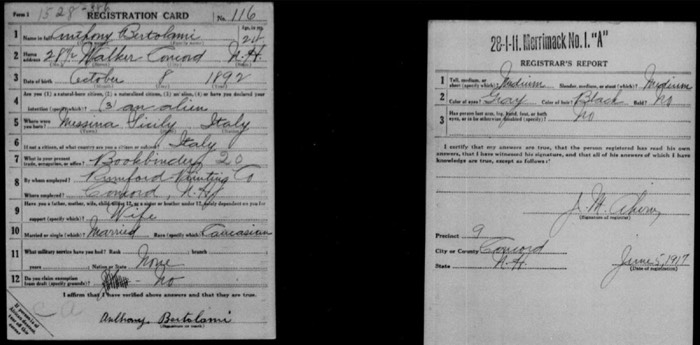 Form 1 1528-386 REGISTRATION CARD No. 116
1 Name in full Anthony Bertolami Age, in yrs. 24
2 Home address 28½ Walker Concord N.H.
3 Date of birth October 8 1892
4 Are you (1) a natural-born citizen, (2) a naturalized citizen, (3) an alien, (4) or have you declared your
intention (specify which)? (3) an alien
5 Where were you born? Messina Sicily Italy
6 If not a citizen, of what country are you a citizen or subject? Italy
7 What is your present trade, occupation, or office? Bookbinder 20
8 By whom employed? Rumford Printing Co
Where employed? Concord, N.H.
9 Have you a father, mother, wife, child under 12, or a sister or brother under 12, solely dependent on you for
support (specify which)? Wife
10 Married or single (which)? Married Race (specify which)? Caucasian
11 What military service have you had? Rank branch
years Nation or State None
12 Do you claim exemption from draft (specify grounds)? No
I affirm that I have verified above answers and that they are true.
Anthony Bertolami
28-1-11. Merrimack No. 1. "A"
REGISTRAR'S REPORT
1 Tall, medium, or short (specify which)? Medium Slender, medium, or stout (which)? Medium
2 Color of eyes? Gray Color of hair? Black Bald? No
3 Has person lost arm, leg, hand, foot, or both eyes, or is he otherwise disabled (specify)? No
I certify that my answers are true, that the person registered has read his own
answers, that I have witnessed his signature, and that all of his answers of which I have
knowledge are true, except as follows:
J. M.
(Signature of registrar)
Precinct 9
City or County Concord
State N.H. June 5, 1917
(Date of registration)